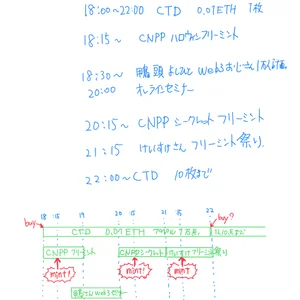 18:00〜22:00 CTD 0.01ETH 7枚
18:15〜 CNPP ハロウィンフリーミント
18:30〜 鴨頭よしひと Web3おじさん1万計画
20:00 オンラインセミナー
20:15〜 CNPP シークレットフリーミント
21:15 けいすけさん フリーミント祭り
22:00〜CTD 10枚まで
buy buy?
18 :15 19 20 :15 21 :15 22
CTD 0.01ETH
CNPP フリーミント CNPPシークレット けいすけフリーミント祭り
mint! mint! mint
鴨さんWeb3セミナー